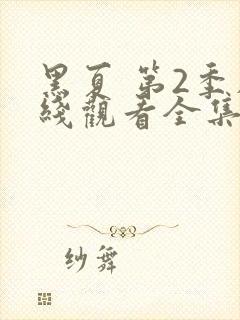 黑夏 第2季
綫觀看全集
纱舞